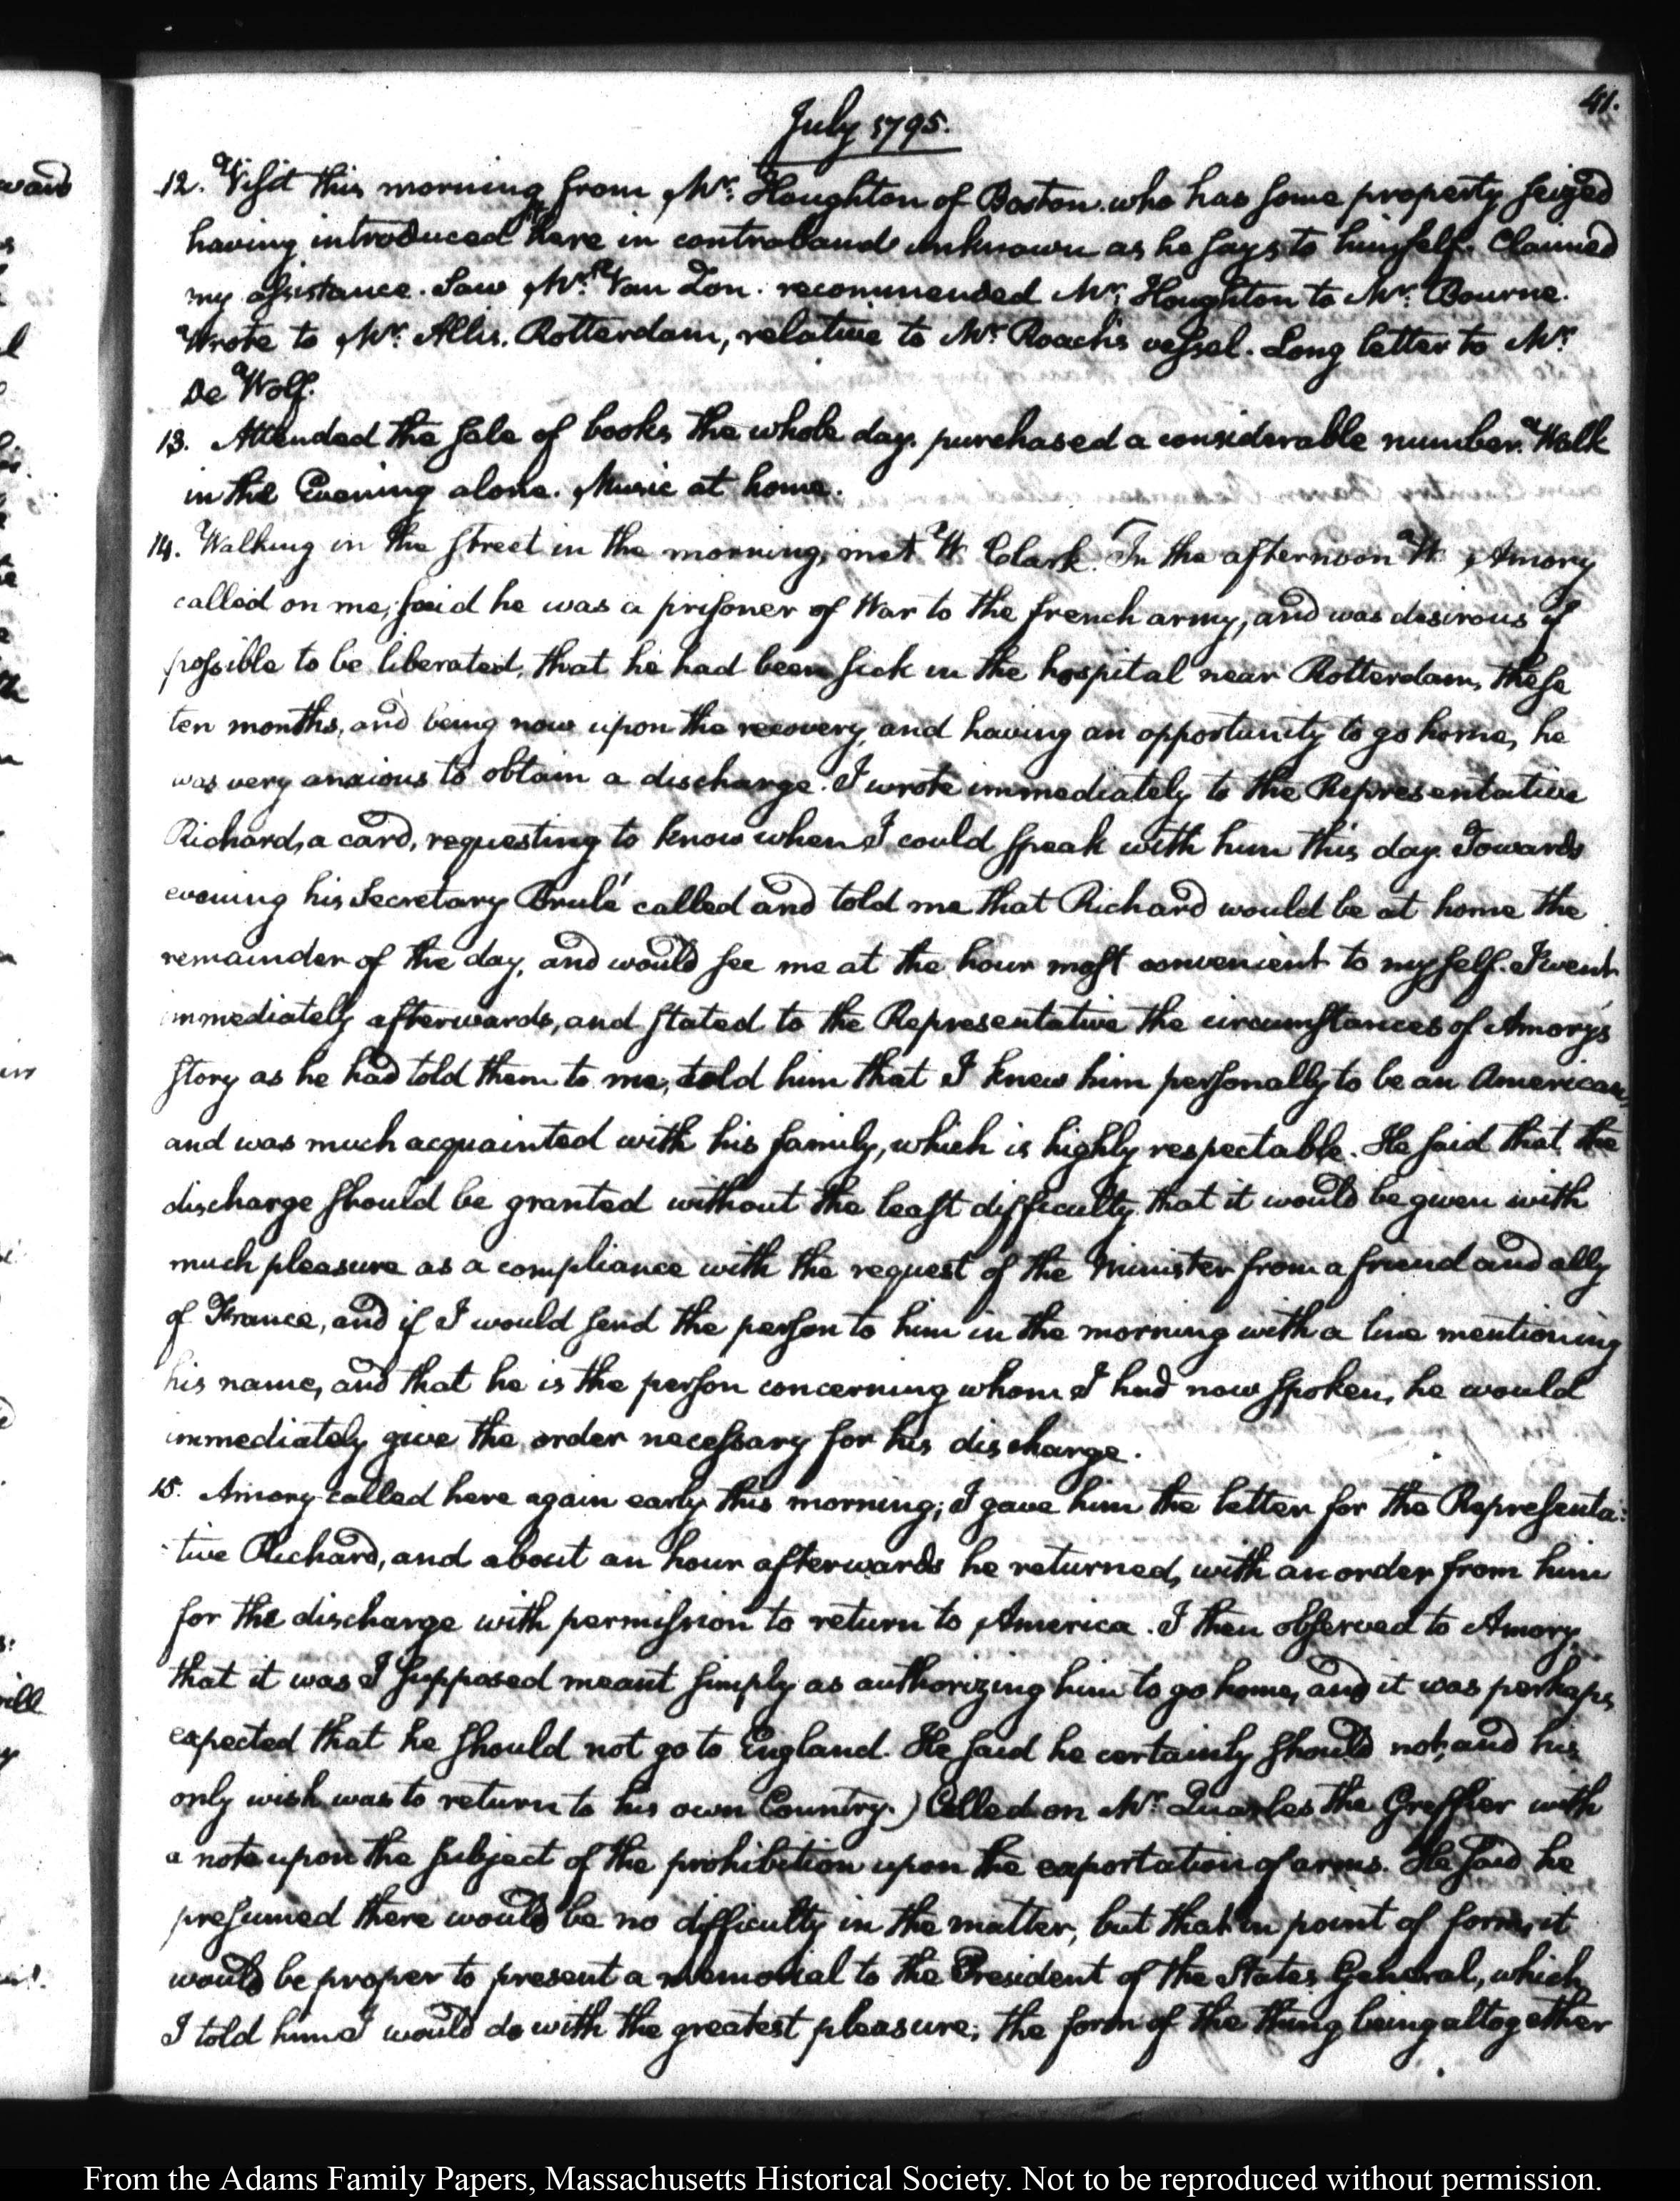 41.
July 1795.
12. Visit this morning from Mr. Houghton of Boston. who has some property seized
having introduced here in contraband unknown as he says to himself. Claimed
my assistance. Saw Mr. Van Son. recommended Mr. Houghton to Mr. Bourne.
Wrote to Mr. Allis. Rotterdam, relative to Mr. Roach's vessel. Long letter to Mr.
De Wolf.
13. Attended the sale of books the whole day. purchased a considerable number. Walk
in the Evening alone. Music at home.
14. Walking in the street in the morning, met W. Clark. In the afternoon W. Amory
called on me; said he was a prisoner of War to the french army, and was desirous if
possible to be liberated, that he had been sick in the hospital near Rotterdam, these
ten months, and being now upon the recovery, and having an opportunity to go home, he
was very anxious to obtain a discharge. I wrote immediately to the Representative
Richard, a card, requesting to know when I could speak with him this day. Towards
evening his Secretary Brulé called and told me that Richard would be at home the
remainder of the day, and would see me at the hour most convenient to myself. I went
immediately afterwards, and stated to the Representative the circumstances of Amory's
story as he had told them to me, told him that I knew him personally to be an American,
and was much acquainted with his family, which is highly respectable. He said that the
discharge should be granted without the least difficulty, that it would be given with
much pleasure as a compliance with the request of the Minister from a friend and ally
of France, and if I would send the person to him in the morning with a line mentioning
his name, and that he is the person concerning whom I had now spoken, he would
immediately give the order necessary for his discharge.
15. Amory called here again early this morning; I gave him the letter for the Representa:
:tive Richard, and about an hour afterwards he returned, with an order from him
for the discharge with permission to return to America. I then observed to Amory,
that it was I supposed meant simply as authorizing him to go home, and it was perhaps
expected that he should not go to England. He said he certainly should not, and his
only wish was to return to his own Country.) Called on Mr. Quarles the Greffier with
a note upon the subject of the prohibition upon the exportation of arms. He said he
presumed there would be no difficulty in the matter, but that in point of form, it
would be proper to present a memorial to the President of the States General, which
I told him I would do with the greatest pleasure; the form of the thing being altogether
From the Adams Family Papers, Massachusetts Historical Society. Not to be reproduced without permission.